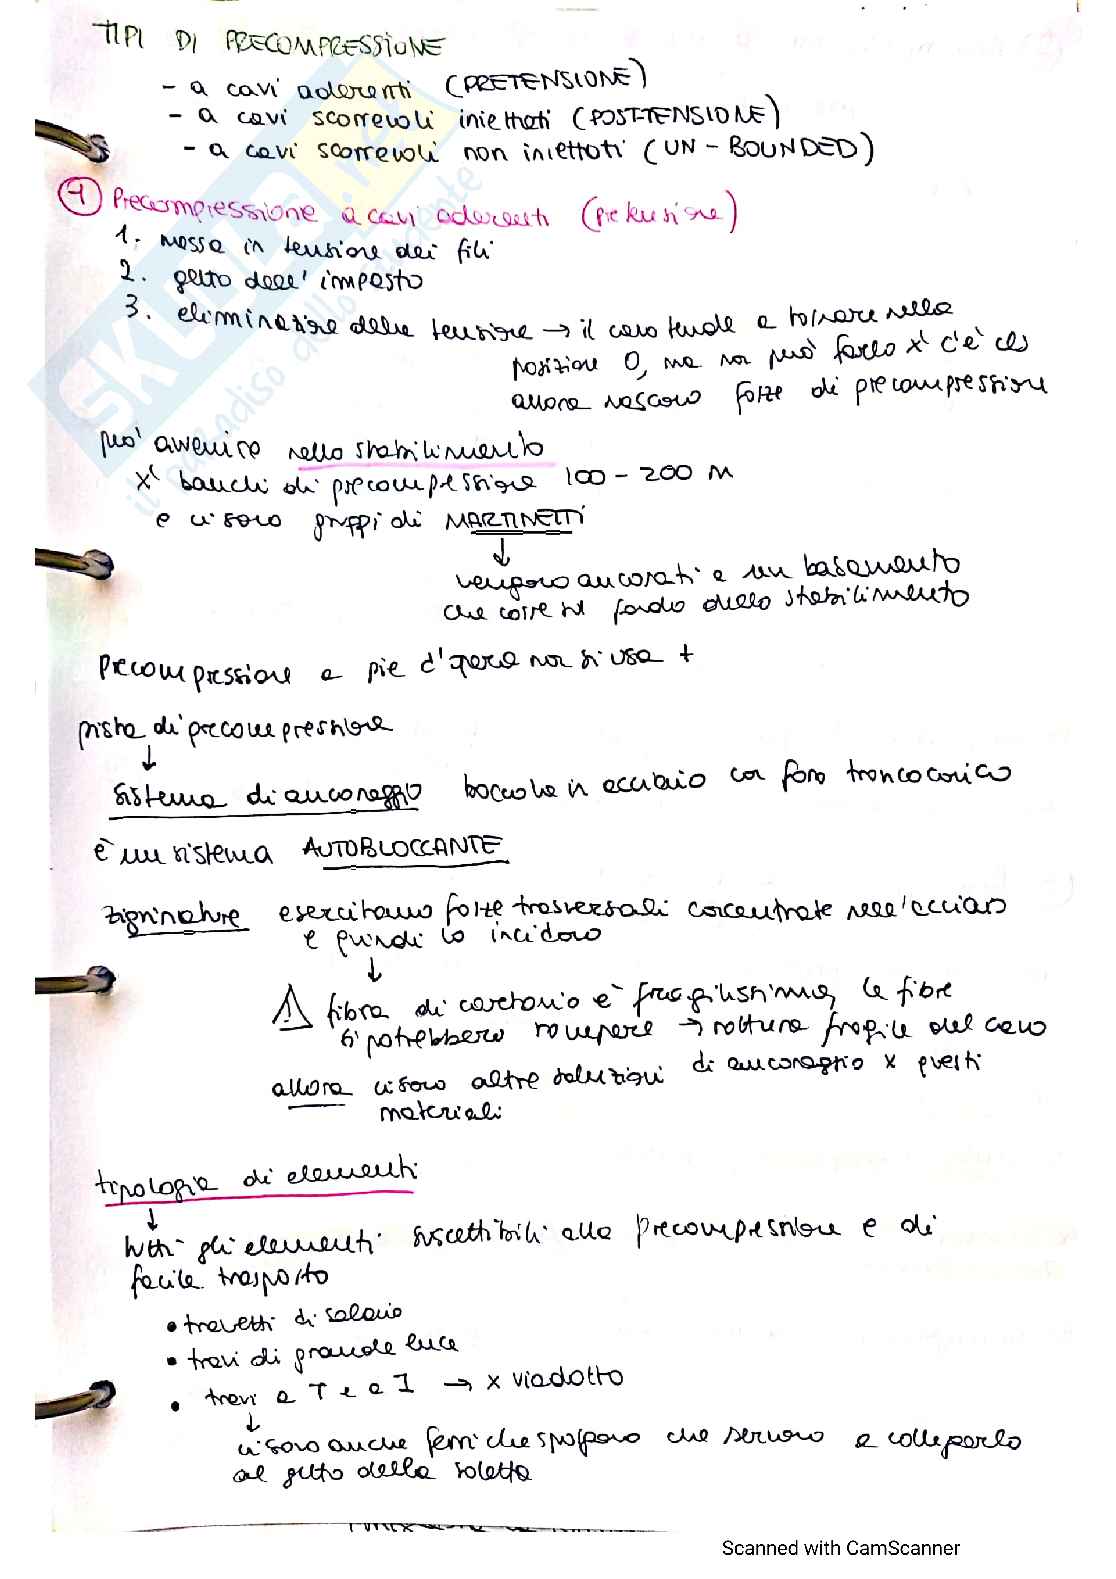 TIPI DI PRECOMPRESSIONE
- a cavi aderenti (PRETENSIONE)
- a cavi scorrevoli iniettati (POST-TENSIONE)
- a cavi scorrevoli non iniettati (UN-BOUNDED)
1 Precompressione a cavi aderenti (pretensione)
1. messa in tensione dei fili
2. getto dell'imposto
3. eliminazione della tensione → il cavo tende a tornare nella
posizione 0, ma non può farlo x' c'è cls
allora nascono forze di precompressione
può avvenire nello stabilimento
x' banchi di precompressione 100 - 200 m
e ci sono gruppi di MARTINETTI
↓
vengono ancorati a un basamento
che corre sul fondo dello stabilimento
Precompressione a piè d'opera non si usa +
pista di precompressione
↓
sistema di ancoraggio boccola in acciaio con foro troncoconico
è un sistema AUTOBLOCCANTE
zigrinature esercitano forze trasversali concentrate nell'acciaio
e quindi lo incidono
↓
⚠ fibra di carbonio è fragilissima, le fibre
si potrebbero rompere → rottura fragile del cavo
allora ci sono altre soluzioni di ancoraggio x questi
materiali
tipologia di elementi
↓
tutti gli elementi suscettibili alla precompressione e di
facile trasporto
• travetti di solaio
• travi di grande luce
• travi a T e a I → x viadotto
↓
ci sono anche ferri che sporgono che servono a collegarlo
al getto della soletta
SKUOLA.net
il paradiso dello studente
Scanned with CamScanner